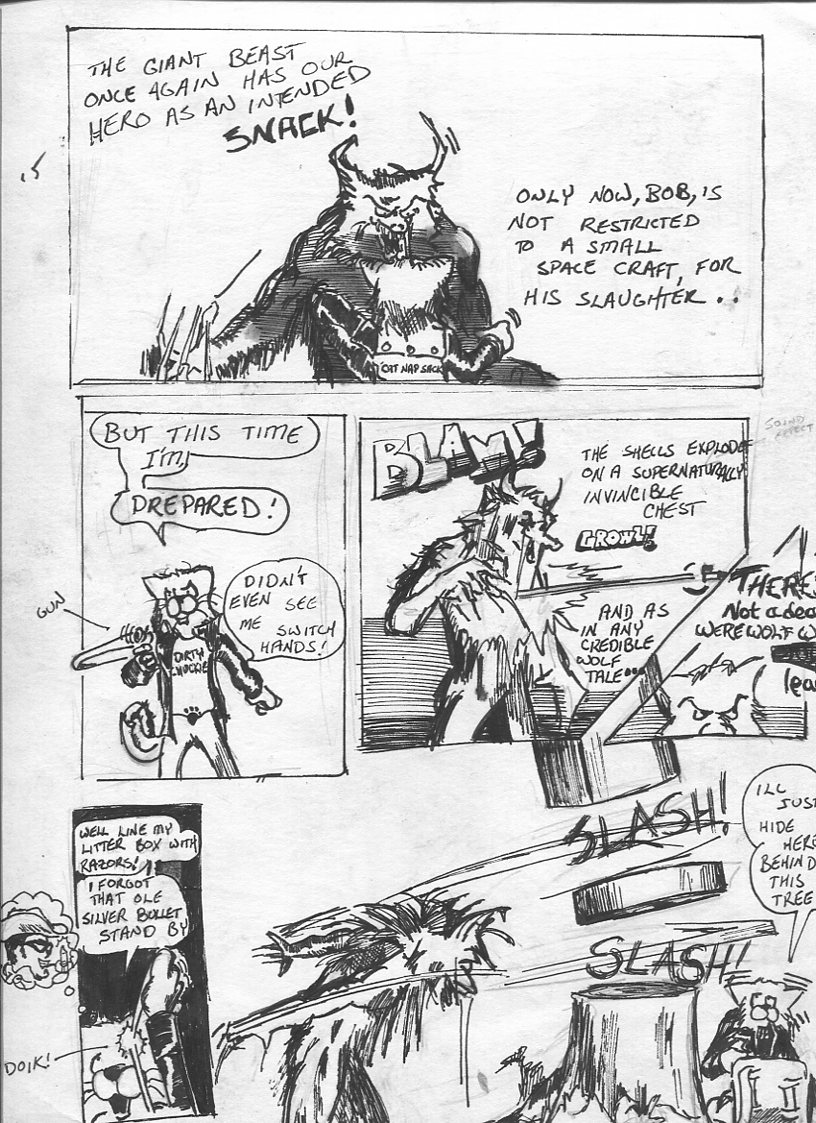 THE GIANT BEAST
ONCE AGAIN HAS OUR
HERO AS AN INTENDED
SNACK!
ONLY NOW, BOB, IS
NOT RESTRICTED
TO A SMALL
SPACE CRAFT, FOR
HIS SLAUGHTER..
CAT NAP SACK
BUT THIS TIME
I'M,
PREPARED!
GUN
DIDN'T
EVEN SEE
ME SWITCH
HANDS!
DIRTY
BLAM!
THE SHELLS EXPLODE
ON A SUPERNATURALLY
INVINCIBLE
CHEST
GROWL!
SOUND
EFFECT
AND AS
IN ANY
CREDIBLE
WOLF
TALE...
THERE'S
Not a dea
WEREWOLF W
lea
WELL LINE MY
LITTER BOX WITH
RAZORS!
I FORGOT
THAT OLE
SILVER BULLET
STAND BY
DOIK!
SLASH!
SLASH!
ILL
JUST
HIDE
HERE
BEHIND
THIS
TREE